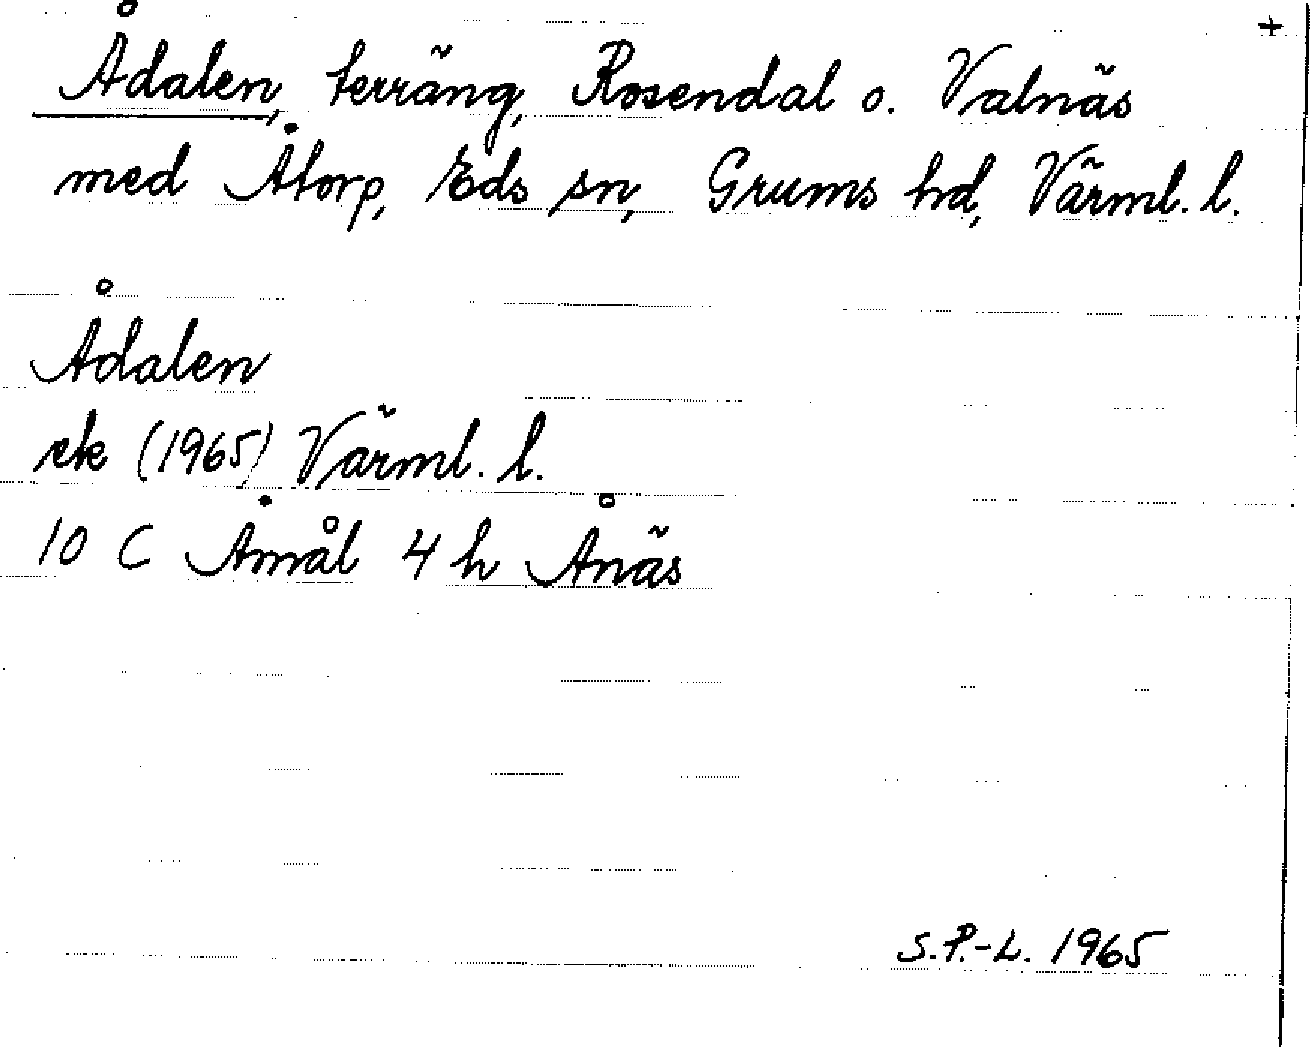 +
Ådalen, terräng, Rosendal o. Valnäs
med Åtorp, Eds sn, Grums hd, Värml. l.
Ådalen
ek (1965) Värml. l.
10 C Åmål 4 h Ånäs
S.P.-L. 1965